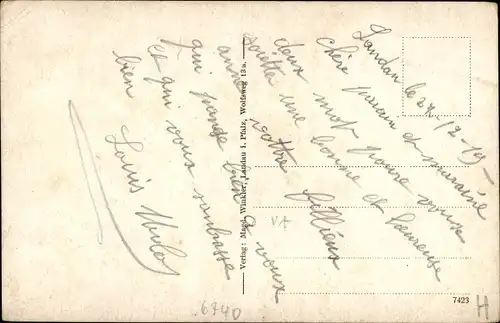 Landau le 24-12-19
chère parain et maraine
deux mot pour vous
soiette une bonne et heureuse
anné vottre fillieux
qui panse bien a vous
et qui vous embrasse
bien
Louis
Verlag: Magd. Winkler, Landau i. Pfalz, Wolfsweg 13a.
7423
6740
H